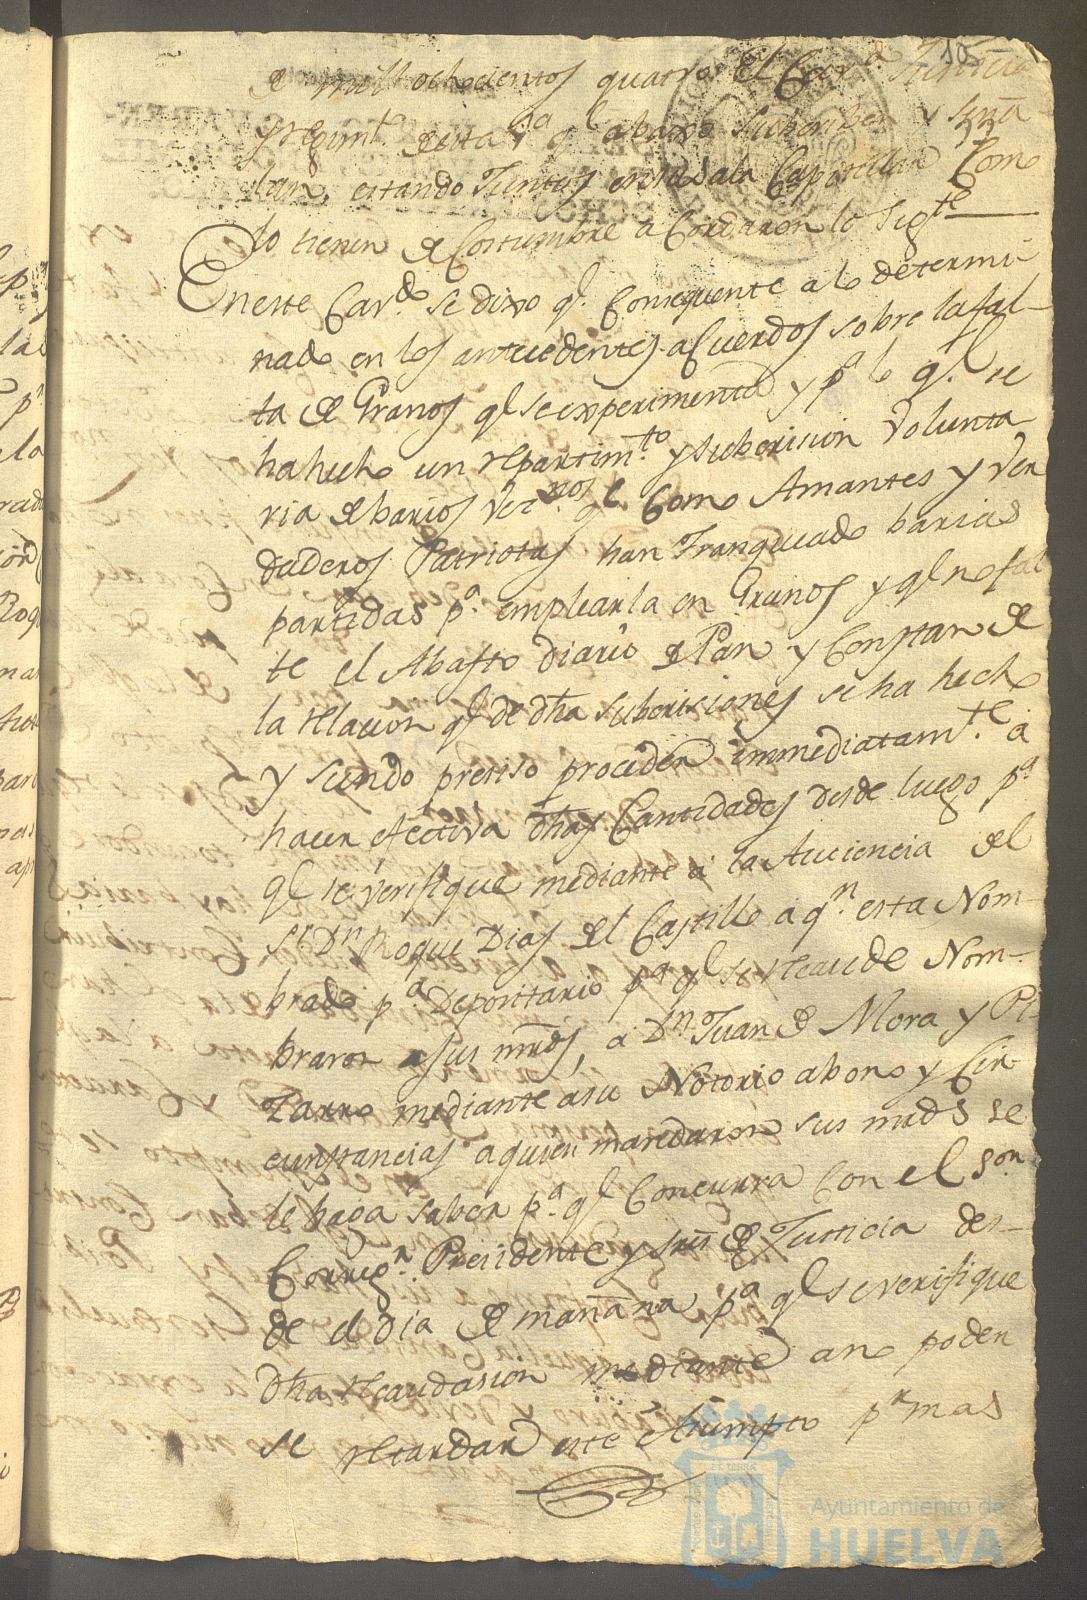 105
de mill ochocientos quatro el Cav.º Justicia
y regim.to de esta V.ª q.e abaxo subscriben y seña
lan, estando Juntos en la sala Capitular Como
lo tienen de Costumbre acordaron lo sig.te
En este Cav.do se dixo q.e Consequente a lo determi
nado en los antecedentes acuerdos sobre la fal-
ta de Granos q.e se experimenta y p.ª lo q.e se
ha hecho un repartim.to y subscrision volunta
ria de barios vez.nos q.e Como Amantes y ver
daderos Patriotas han franqueado barias
partidas p.ª emplearla en Granos y q.e no fal
te el Abasto diario de Pan y Constan de
la relacion q.e de dha subscrisiones se ha hecho
y siendo preciso proceder immediatam.te à
hacer efectiva dhas Cantidades desde luego p.ª
q.e se verifique mediante à la Auciencia del
S.r D.n Roque Dias del Castillo a q.n esta Nom
brado p.ª Depositario p.ª q.e se recaude Nom-
braron sus mrds, a D.n Juan de Mora y Pi
zarro mediante a su Notorio abono y Cir-
cunstancias a quien mandaron sus mrds se
le haga saber p.ª q.e Concurra Con el S.or
Correg.r Presidente y sres de Justicia des-
de el dia de mañana p.ª q.e se verifique
dha recaudasion mediante a no poder
se retardar este asumpto p.r mas
Ayuntamiento de
HUELVA